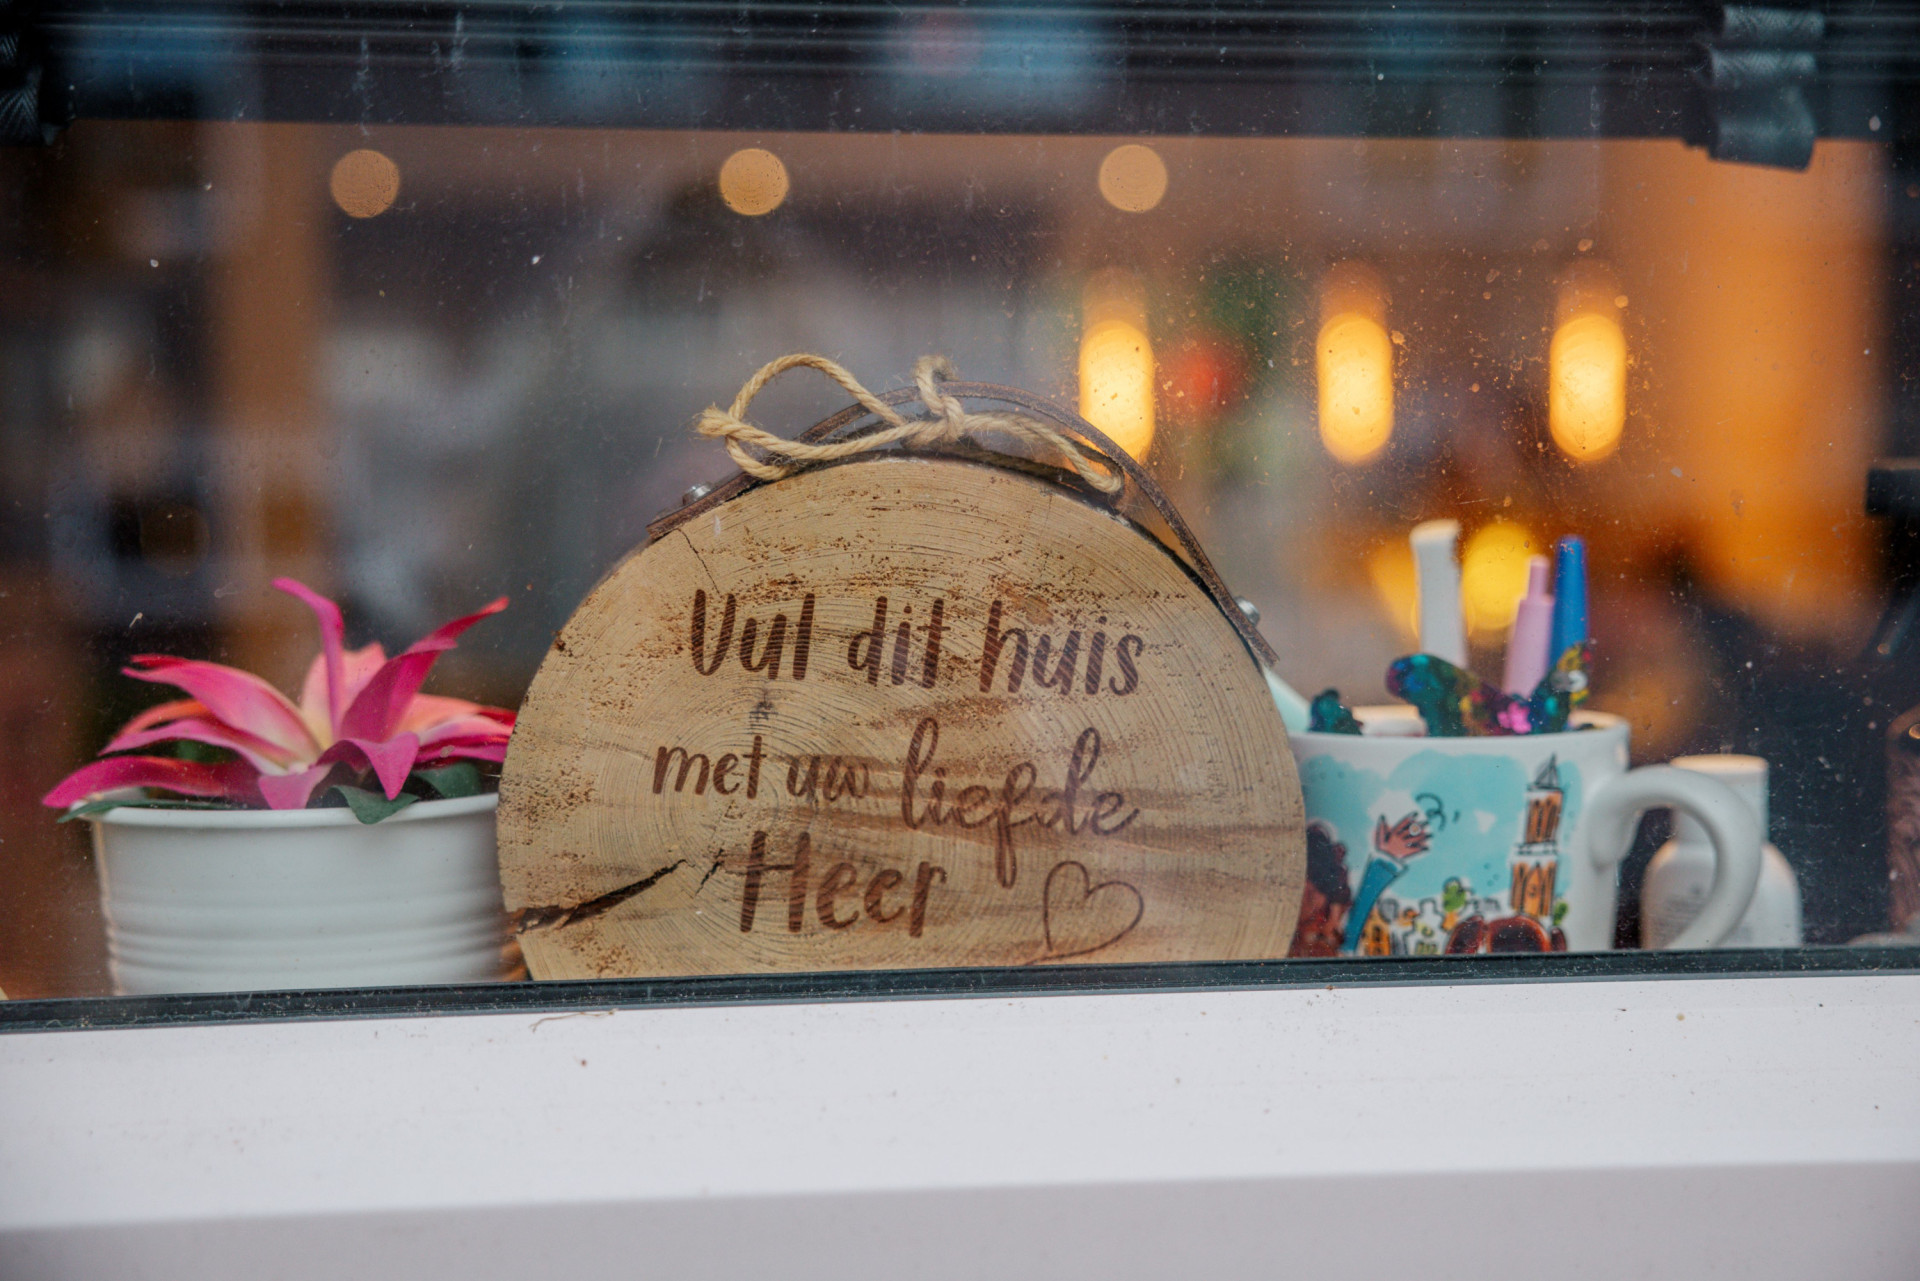 Vul dit huis
met uw liefde
Heer